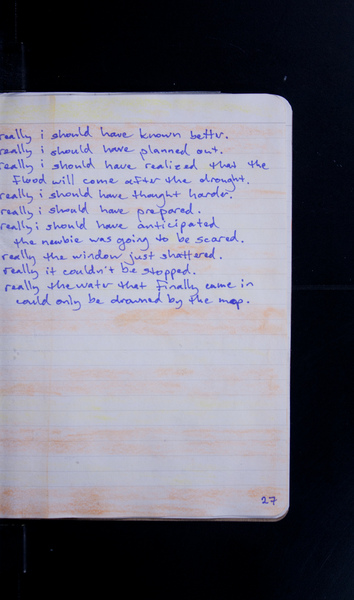 really i should have known bettr.
really i should have planned out.
really i should have realized that the
flood will come after the drought.
really i should have thought harder.
really i should have prepared.
really i should have anticipated
the newbie was going to be scared.
really the window just shattered.
really it couldn't be stopped.
really the water that finally came in
could only be drowned by the mop.
27